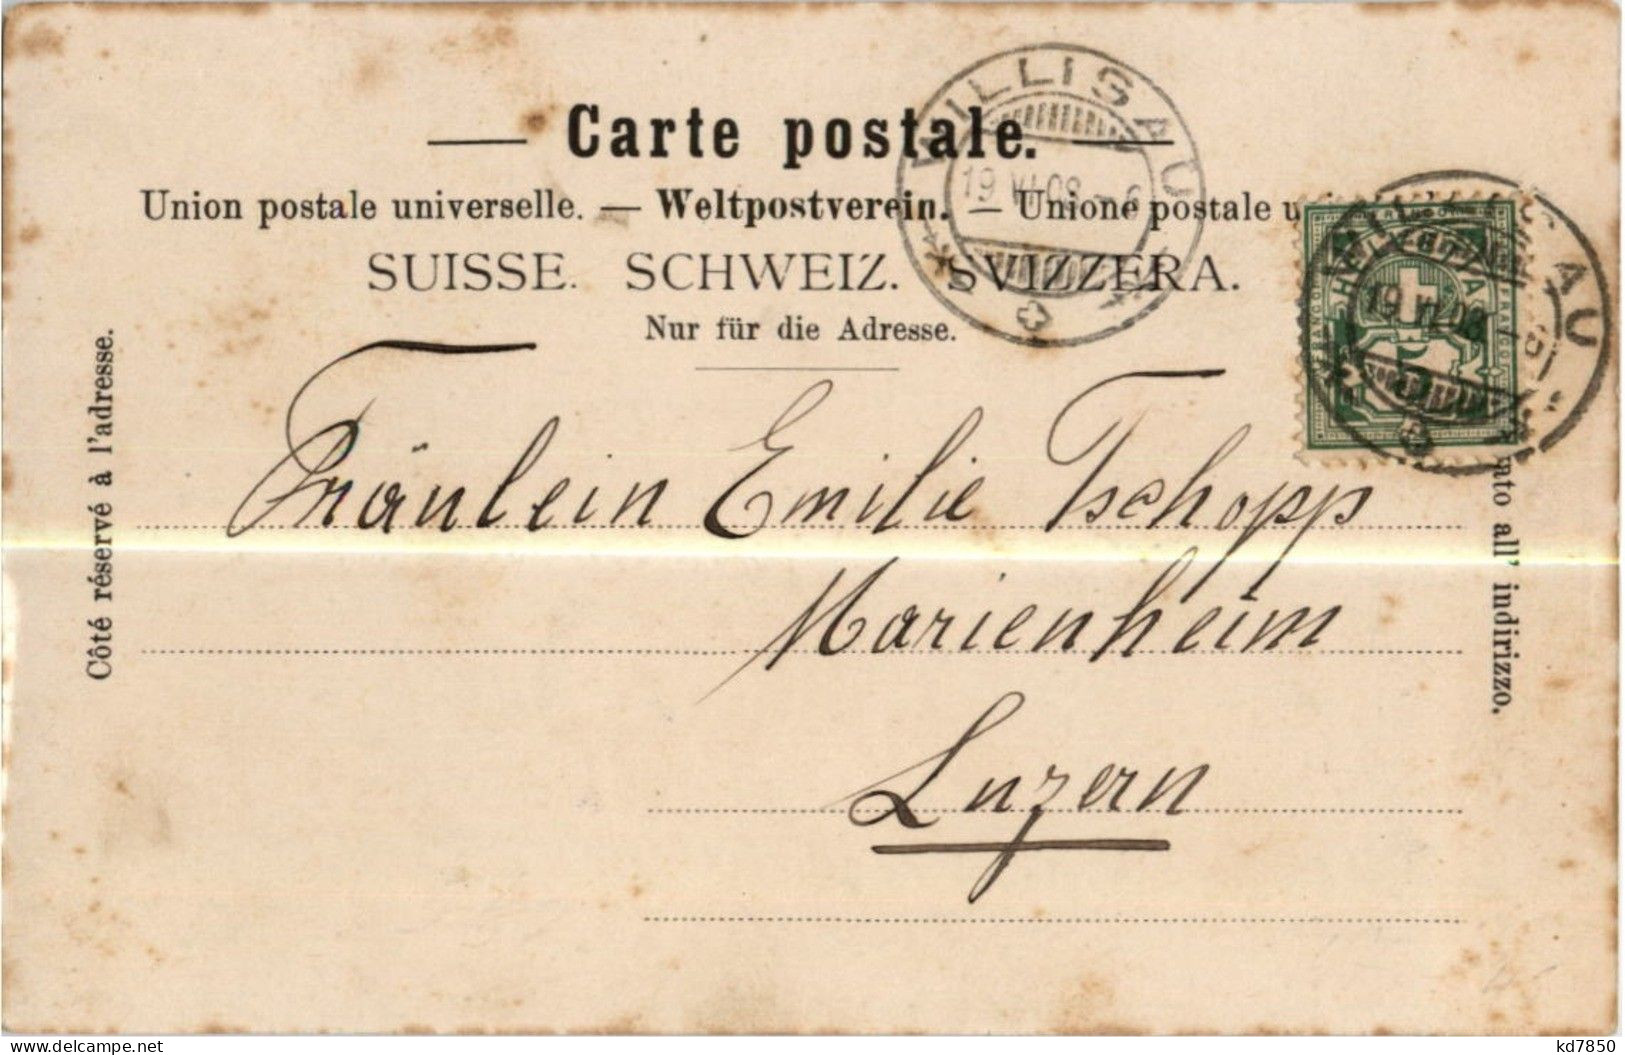 Carte postale.
Union postale universelle. — Weltpostverein. — Unione postale u
SUISSE. SCHWEIZ. SVIZZERA.
Nur für die Adresse.
WILLISAU
19 VI 08
HELVETIA
5
WILLISAU
19 VI 08
Côté réservé à l'adresse.
Fräulein Emilie Tschopp
Marienheim
Luzern
all' indirizzo.
www.delcampe.net
kd7850